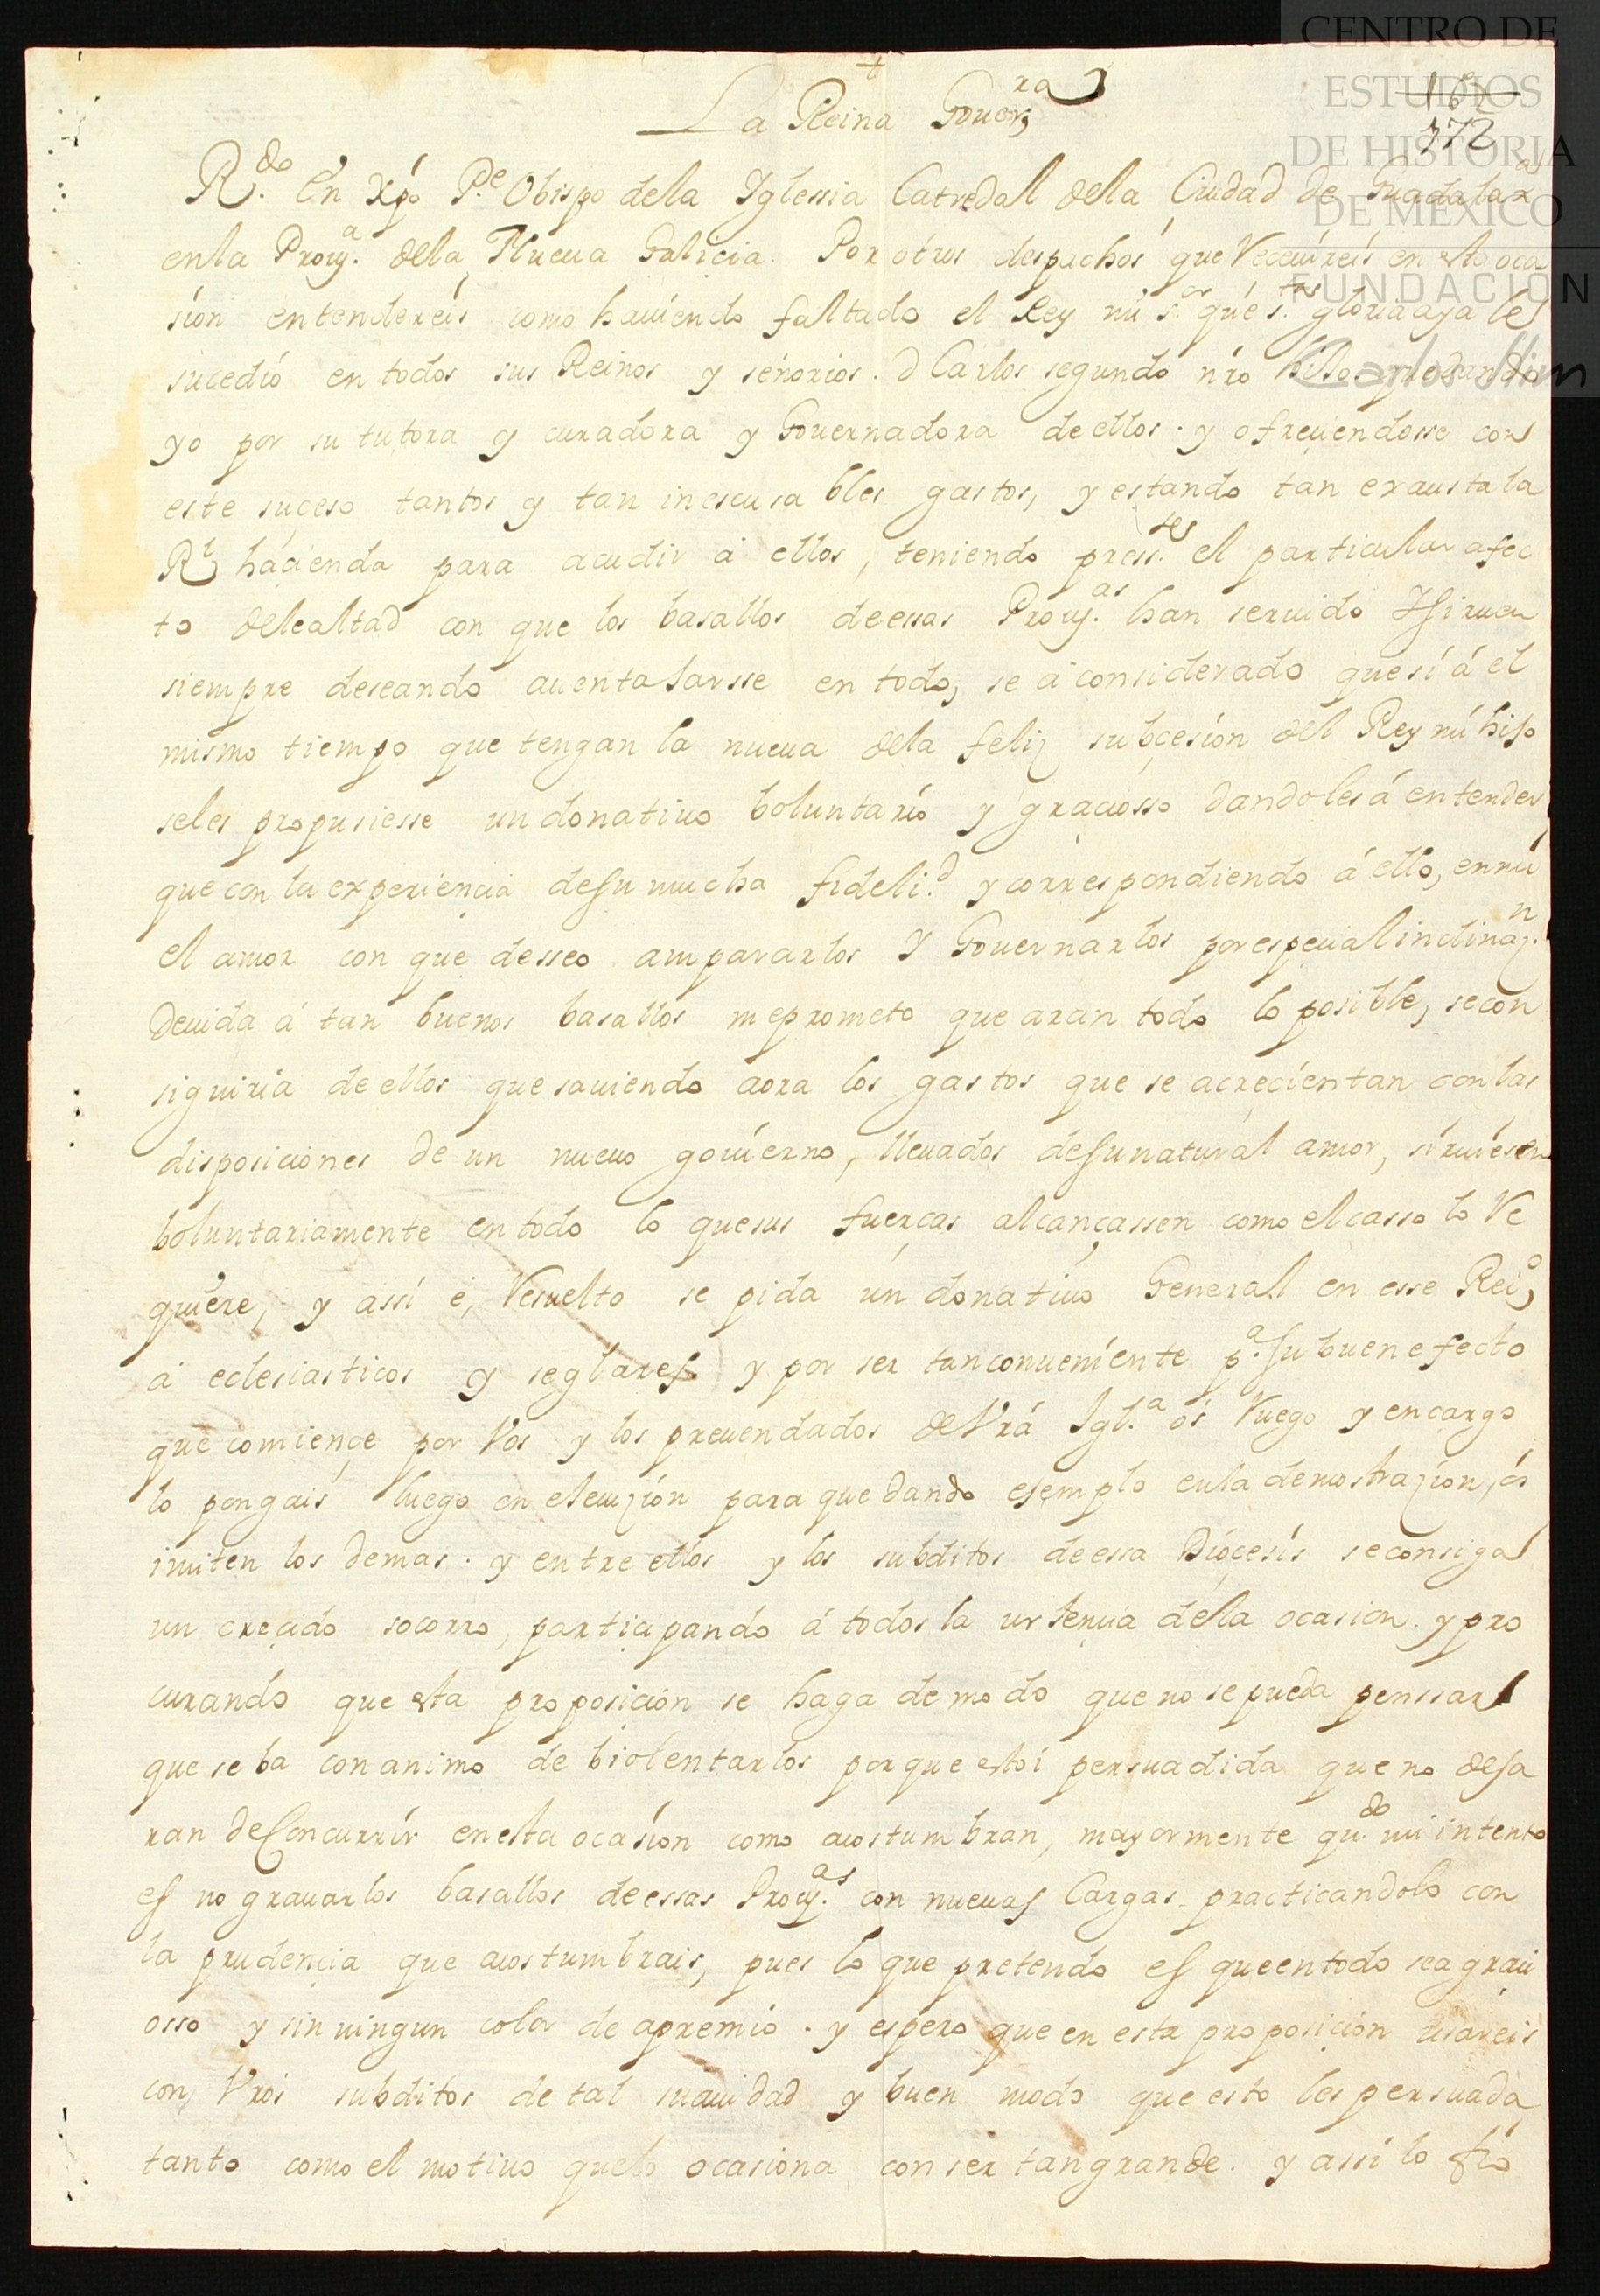 CENTRO DE
ESTUDIOS
DE HISTORIA
DE MÉXICO
FUNDACIÓN
Carlos Slim
172
La Reina Gouer.ra
R.do en xpo P.e Obispo dela Iglessia Catredal dela Ciudad de Guadalax.a
enla Prouj.a dela Nueua Galicia. Por otros despachos que Receuireis en esta oca
sion entendereis como hauiendo faltado el Rey mi s.or que s.ta gloria aya le
sucedio en todos sus Reinos y señorios. D Carlos segundo nro hijo quedando
yo por su tutora y curadora y Gouernadora de ellos. y ofreciendosse con
este suceso tantos y tan inescusables gastos, y estando tan exausta la
R.l hacienda para acudir á ellos, teniendo press.tes el particular afec
to delealtad con que los basallos deessas Prouj.as han seruido Y siruen
siempre deseando auentajarsse en todo, se á considerado que si á el
mismo tiempo que tengan la nueua dela feliz subçesion del Rey mi hijo
seles propusiesse un donatiuo boluntario y graciosso dandoles á entender
que con la experiencia desu mucha fideli.d y correspondiendo á ello, en mi
el amor con que desseo ampararlos Y Gouernarlos por especial inclinaz.n
Deuida á tan buenos basallos me prometo que aran todo lo posible, se con
siguiria de ellos que sauiendo aora los gastos que se acreçientan con las
disposiciones de un nueuo gouierno, lleuados desu natural amor, siruiesen
boluntariamente en todo lo que sus fuerças alcançassen como el casso lo Re
quiere, y assi é, Resuelto se pida un donatiuo General en esse Rei.o
á eclesiasticos y seglares y por ser tan conueniente p.a su buen efecto
que comiençe por Vos y los preuendados de Vrá Igl.a os Ruego y encargo
lo pongais luego en ejecuzion para que dando ejemplo en la demostrazion, os
imiten los demas. y entre ellos y los subditos deessa Dioçesis se consiga
un creçido socorro, participando á todos la urjencia dela ocasion. y pro
curando que esta proposición se haga de modo que no se pueda penssar
que se ba con animo de biolentarlos porque estoi persuadida que no deja
ran de Concurrir en esta ocasion como acostumbran, mayormente qu.do mi intento
es no grauar los basallos deessas Prouj.as con nueuas Cargas practicandolo con
la prudençia que acostumbrais, pues lo que pretendo es que en todo sea graci
osso y sin ningun color de apremio. y espero que en esta proposición usareis
con Vros subditos de tal suauidad y buen modo que esto les persuada
tanto como el motiuo que lo ocasiona con ser tan grande. y assi lo fio